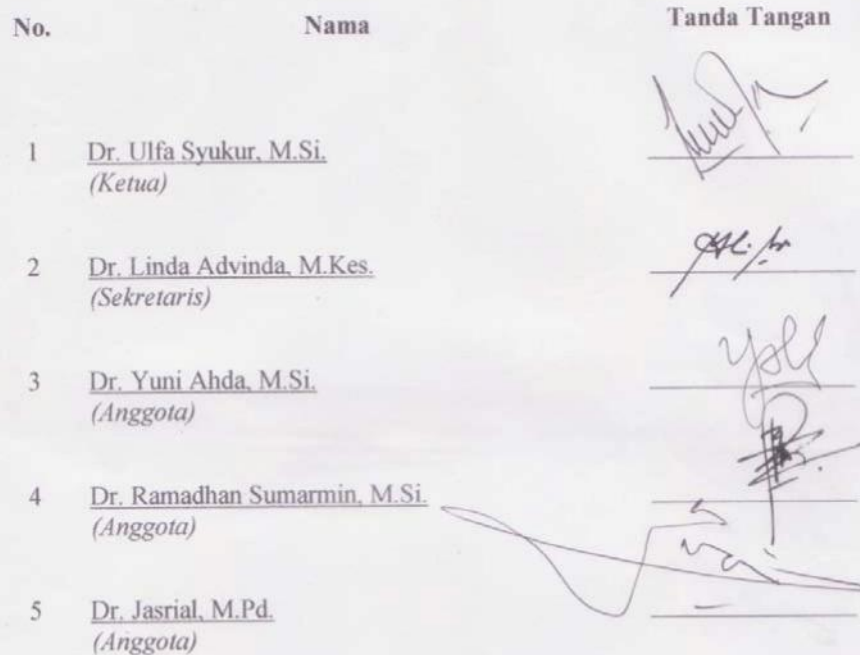 No. Nama Tanda Tangan
1 Dr. Ulfa Syukur, M.Si.
(Ketua)
2 Dr. Linda Advinda, M.Kes.
(Sekretaris)
3 Dr. Yuni Ahda, M.Si.
(Anggota)
4 Dr. Ramadhan Sumarmin, M.Si.
(Anggota)
5 Dr. Jasrial, M.Pd.
(Anggota)